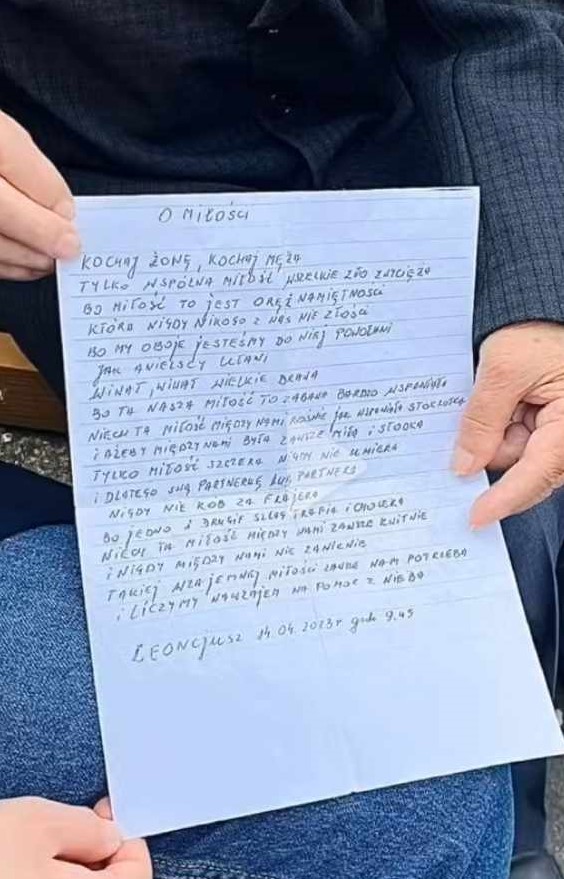 O MIŁOŚCI
KOCHAJ ŻONĘ, KOCHAJ MĘŻA
TYLKO WSPÓLNA MIŁOŚĆ, WSZELKIE ZŁO ZWYCIĘŻA
BO MIŁOŚĆ TO JEST ORĘŻ NAMIĘTNOŚCI
KTÓRA NIGDY NIKOGO Z NAS NIE ZŁOŚCI
BO MY OBOJE JESTEŚMY DO NIEJ POWOŁANI
JAK ANIELSCY UŁANI
WIWAT, WIWAT WIELKIE BRAWA
BO TA NASZA MIŁOŚĆ TO ZABAWA BARDZO WSPANIAŁA
NIECH TA MIŁOŚĆ MIĘDZY NAMI ROŚNIE JAK WSPANIAŁA STOKROTKA
I AŻEBY MIĘDZY NAMI BYŁA ZAWSZE MIŁA I SŁODKA
TYLKO MIŁOŚĆ SZCZERA NIGDY NIE UMIERA
I DLATEGO SWĄ PARTNERKĘ LUB PARTNERA
NIGDY NIE RÓB ZA FRAJERA
BO JEDNO I DRUGIE SZLAG TRAFIA I CHOLERA
NIECH TA MIŁOŚĆ MIĘDZY NAMI ZAWSZE KWITNIE
I NIGDY MIĘDZY NAMI NIE
TAKIEJ WZAJEMNEJ MIŁOŚCI ZAWSZE NAM POTRZEBA
I LICZYMY NAWZAJEM NA POMOC Z NIEBA
LEONCJUSZ 14.04.2023r godz 9.45